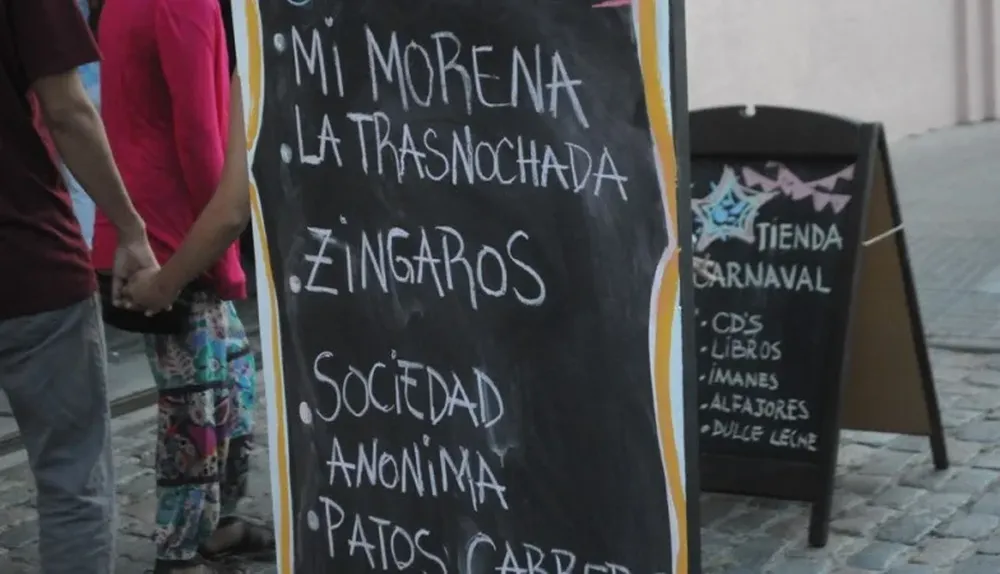 • MI MORENA
• LA TRASNOCHADA
• ZINGAROS
• SOCIEDAD
ANONIMA
• PATOS CABRER
TIENDA
CARNAVAL
• CD'S
• LIBROS
• IMANES
• ALFAJORES
• DULCE LECHE